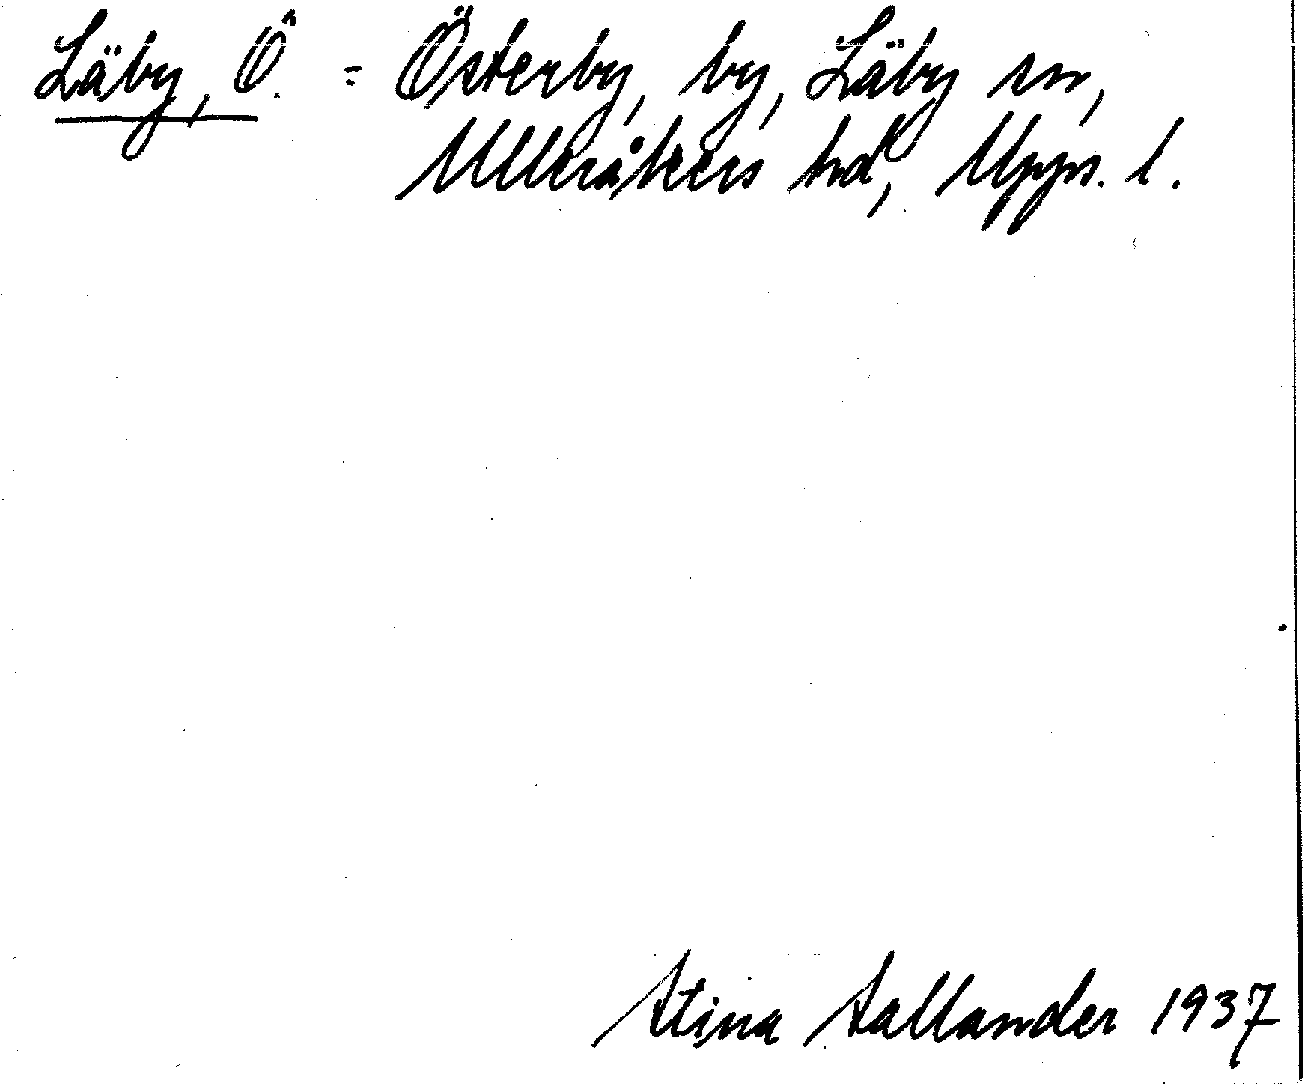 Läby, Ö. = Österby, by, Läby sn,
Ulleråkers hd, Upps. l.
Stina Sallander 1937